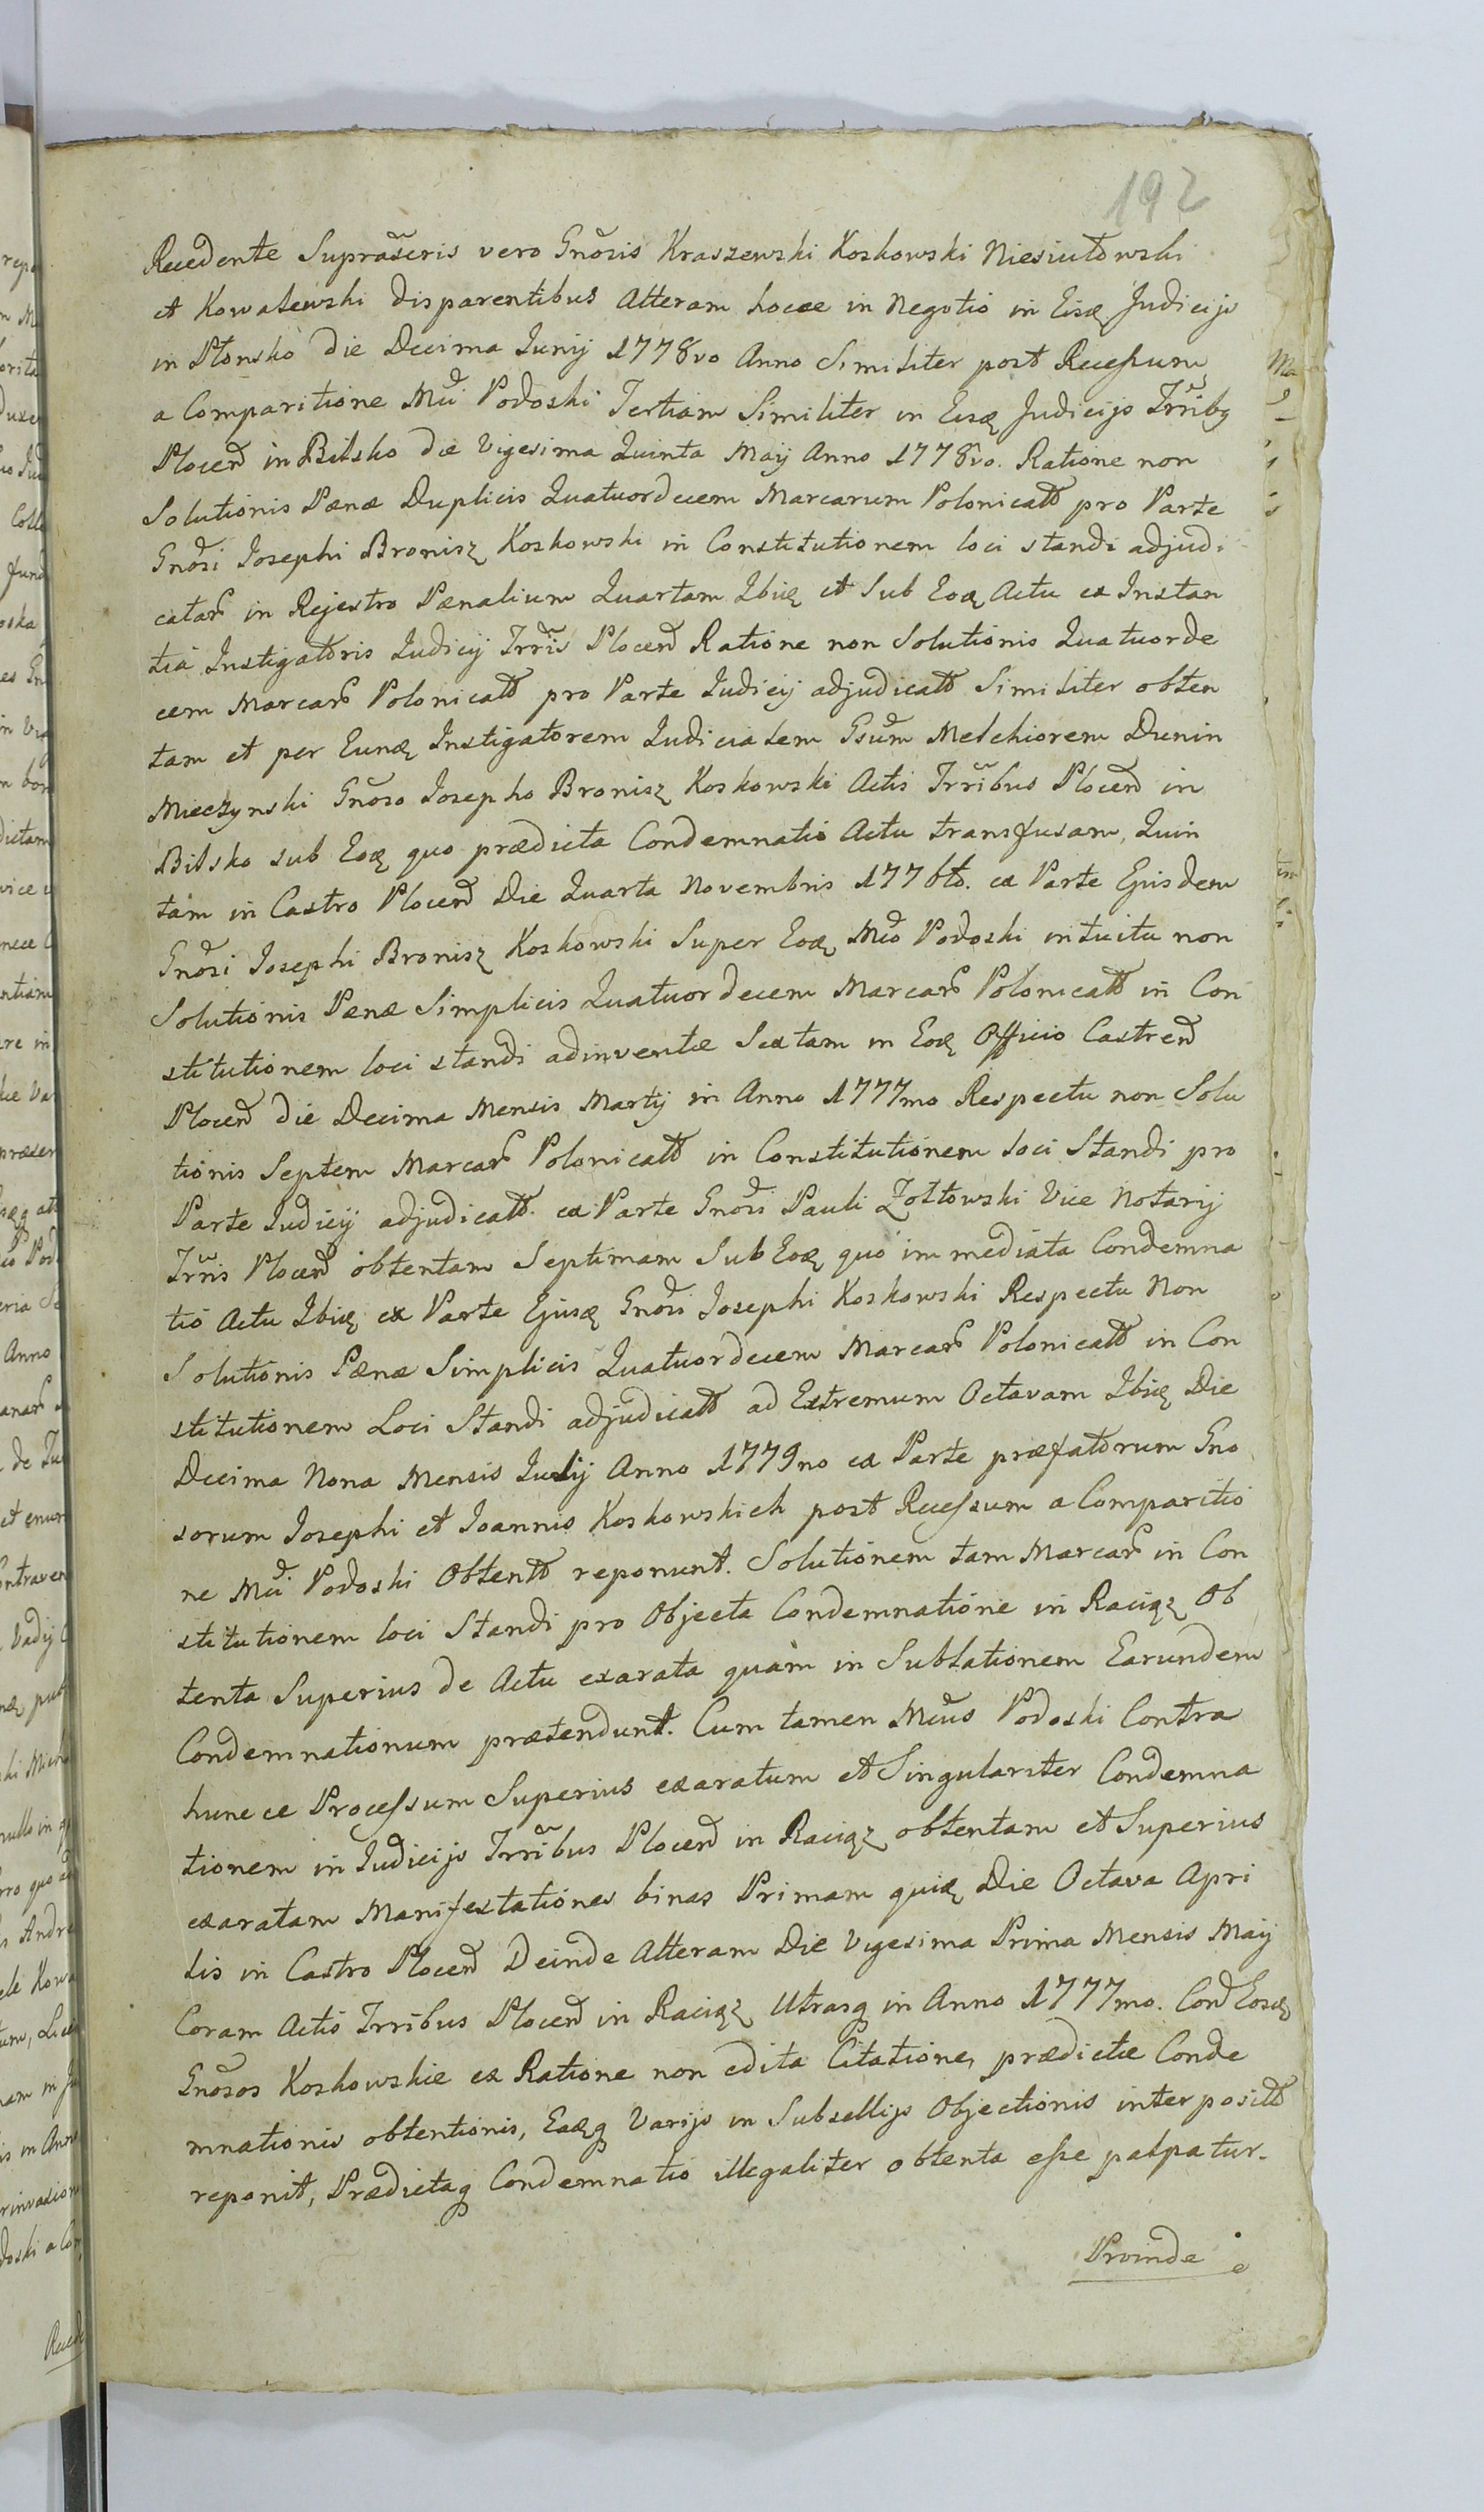 192
Recedente Suprascris vero Gnosis Kraszewski Koskowski Niesiułowski
et Kowalewski disparentibus Alteram hocce in Negotio in Eisq Judicijs
in Płonsko die Decima Junij 1778vo Anno Similiter post Recessum
a Comparitione Mci Podoski Tertiam Similiter in Eisq Judicijs Trribq
Plocen in Bilsko die Vigesima Quinta Maij Anno 1778vo. Ratione non
Solutionis Pænæ Duplicis Quatuordecem Marcarum Polonicatt pro Parte
Gnosi Josephi Bronisz Koskowski in Constitutionem loci standi adjudi
catar in Rejestro Pænalium Quartam Ibidq et Sub Eodq Actu ex Instan
tia Instigatoris Judicij Trris Plocen Ratione non Solutionis Quatuorde
cem Marcar Polonicatt pro Parte Judicij adjudicatt Similiter obten
tam et per Eundq Instigatorem Judicialem Gsum Melchiorem Dunin
Mieczynski Gnoso Josepho Bronisz Koskowski Actis Trribus Plocen in
Bilsko sub Eodq quo prædicta Condemnatio Actu transfusam, Quin
tam in Castro Plocen Die Quarta Novembris 1776to. ex Parte Ejusdem
Gnosi Josephi Bronisz Koskowski Super Eodq Mco Podoski intuitu non
Solutionis Pænæ Simplicis Quatuordecem Marcar Polonicatt in Con
stitutionem loci standi adinventæ Sextam in Eodq Officio Castren
Plocen die Decima Mensis Martij in Anno 1777mo Respectu non Solu
tionis Septem Marcar Polonicatt in Constitutionem loci Standi pro
Parte Judicij adjudicatt. ex Parte Gnosi Pauli Zołtowski Vice Notarij
Trris Plocen obtentam Septimam Sub Eodq quo immediata Condemna
tio Actu Ibidq ex Parte Ejusdq Gnosi Josephi Koskowski Respectu Non
Solutionis Pænæ Simplicis Quatuordecem Marcar Polonicatt in Con
stitutionem Loci Standi adjudicatt ad Extremum Octavam Ibidq Die
Decima Nona Mensis Julij Anno 1779no ex Parte præfatorum Gno
sorum Josephi et Joannis Koskowskich post Recessum a Comparitio
ne Mci Podoski Obtentt reponunt. Solutionem tam Marcar in Con
stitutionem loci Standi pro Objecta Condemnatione in Raciąz Ob
tenta Superius de Actu exarata quam in Sublationem Earundem
Condemnationum prætendunt. Cum tamen Mcus Podoski Contra
hunc ce Processum Superius exaratum et Singulariter Condemna
tionem in Judicijs Trribus Plocen in Raciąz obtentam et Superius
exaratam Manifestationes binas Primam quidq Die Octava Apri
lis in Castro Plocen Deinde Alteram Die Vigesima Prima Mensis Maij
Coram Actis Trribus Plocen in Raciąz Utrasq in Anno 1777mo. Con Eosdq
Gnosos Koskowskie ex Ratione non edita Citatione, prædictæ Conde
mnationis obtentionis, Easq Varijs in Subsellijs Objectionis interpositt
reponit, Prædictaq Condemnatio illegaliter obtenta esse palpatur.
Proinde